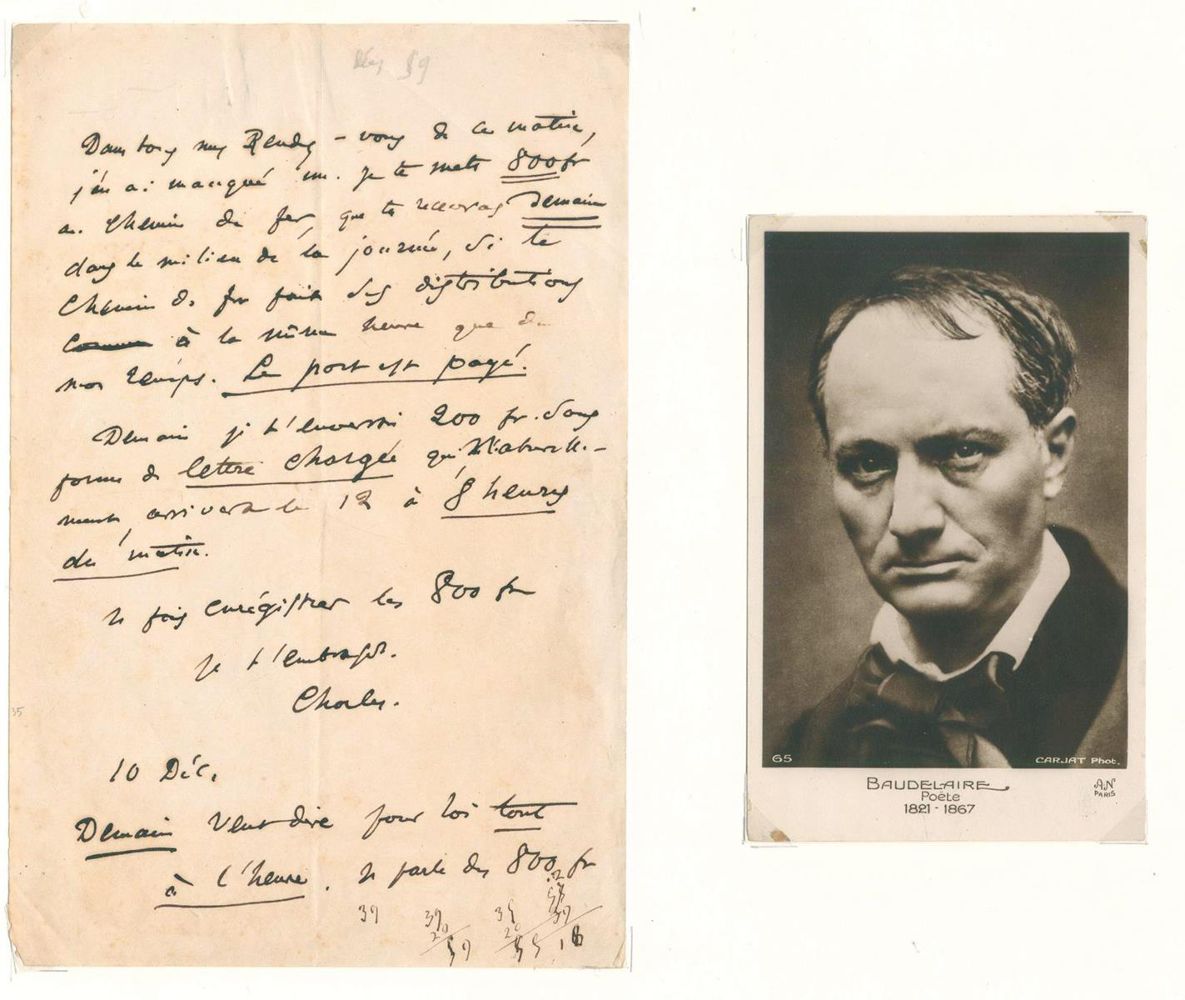 Déc 59
Dans tous mes Rendez-vous de ce matin,
j'en ai manqué un. Je te mets 800 fr
au Chemin de fer, que tu recevras Demain
dans le milieu de la journée, si le
Chemin de fer fait ses distributions
à la même heure que de
mon temps. Le port est payé.
Demain je t'enverrai 200 fr. sous
forme de lettre chargée qui Naturelle-
ment, arrivera le 12 à 8 heures
du matin.
Je fais enrégistrer les 800 fr
Je t'embrasse.
Charles.
10 Déc.
Demain veut dire pour toi tout
à l'heure. Je parle des 800 fr
39
39
20
59
35
65
CARJAT Phot.
BAUDELAIRE
Poète
1821 - 1867
AN
PARIS